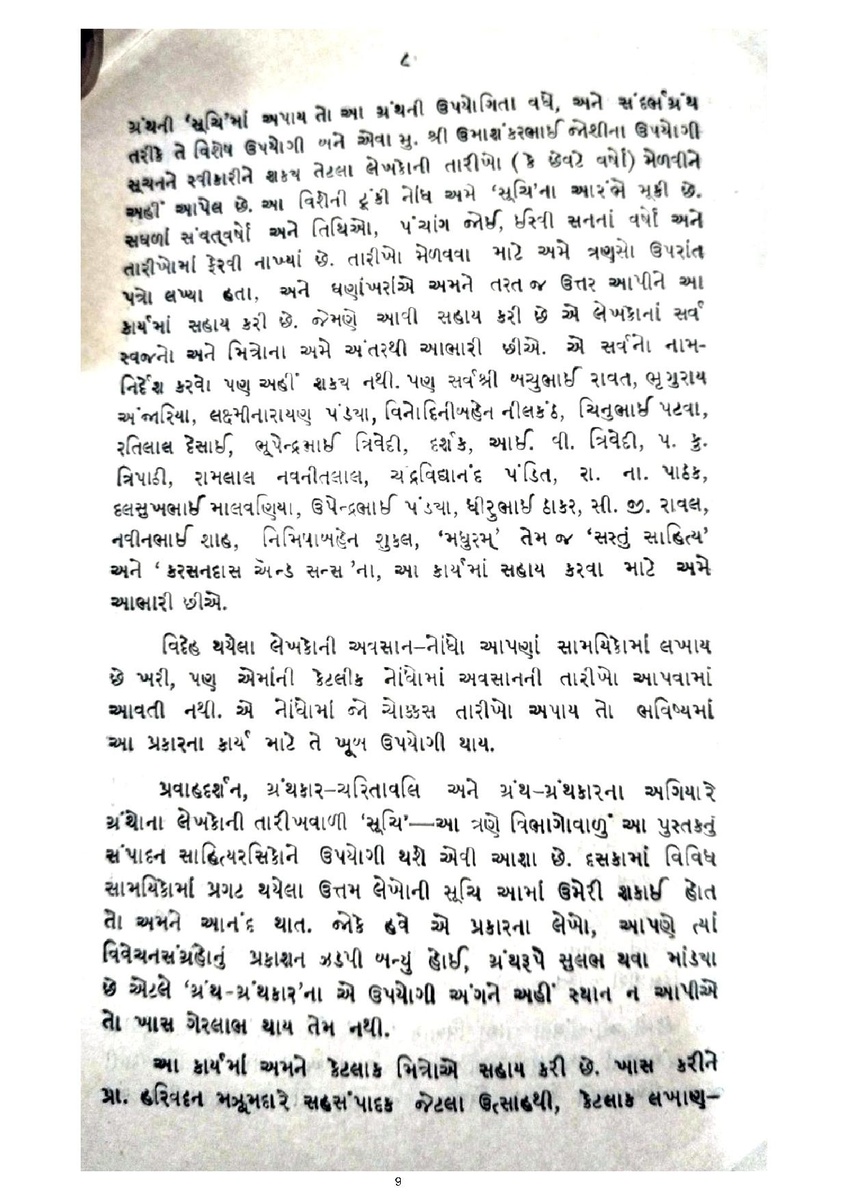 ૮
ગ્રંથની ‘સૂચિ’માં અપાય તો આ ગ્રંથની ઉપયોગિતા વધે, અને સંદર્ભગ્રંથ
તરીકે તે વિશેષ ઉપયોગી બને એવા મુ. શ્રી ઉમાશંકરભાઈ જોશીના ઉપયોગી
સૂચનને સ્વીકારીને શક્ય તેટલા લેખકોની તારીખો (કે છેવટે વર્ષો) મેળવીને
અહીં આપેલ છે. આ વિશેની ટૂંકી નોંધ અમે ‘સૂચિ’ના આરંભે મૂકી છે.
સઘળાં સંવતવર્ષો અને તિથિઓ, પંચાંગ જોઈ, ઈસ્વી સનનાં વર્ષો અને
તારીખોમાં ફેરવી નાખ્યાં છે. તારીખો મેળવવા માટે અમે ત્રણસો ઉપરાંત
પત્રો લખ્યા હતા, અને ઘણાંખરાંએ અમને તરત જ ઉત્તર આપીને આ
કાર્યમાં સહાય કરી છે. જેમણે આવી સહાય કરી છે એ લેખકોનાં સર્વ
સ્વજનો અને મિત્રોના અમે અંતરથી આભારી છીએ. એ સર્વનો નામ-
નિર્દેશ કરવો પણ અહીં શક્ય નથી. પણ સર્વશ્રી બચુભાઈ રાવત, ભૃગુરાય
અંજારિયા, લક્ષ્મીનારાયણ પંડ્યા, વિનોદિનીબહેન નીલકંઠ, ચિનુભાઈ પટવા,
રતિલાલ દેસાઈ, ભૂપેન્દ્રભાઈ ત્રિવેદી, દર્શક, આઈ. વી. ત્રિવેદી, પ. કુ.
ત્રિપાઠી, રામલાલ નવનીતલાલ, ચંદ્રવિદ્યાનંદ પંડિત, રા. ના. પાઠક,
દલસુખભાઈ માલવણિયા, ઉપેન્દ્રભાઈ પંડ્યા, ધીરુભાઈ ઠાકર, સી. જી. રાવલ,
નવીનભાઈ શાહ, નિમિષાબહેન શુક્લ, ‘મધુરમ્’ તેમ જ ‘સસ્તું સાહિત્ય’
અને ‘કરસનદાસ ઍન્ડ સન્સ’ના, આ કાર્યમાં સહાય કરવા માટે અમે
આભારી છીએ.
વિદેહ થયેલા લેખકોની અવસાન–નોંધો આપણાં સામયિકોમાં લખાય
છે ખરી, પણ એમાંની કેટલીક નોંધોમાં અવસાનની તારીખો આપવામાં
આવતી નથી. એ નોંધોમાં જો ચોક્કસ તારીખો અપાય તો ભવિષ્યમાં
આ પ્રકારના કાર્ય માટે તે ખૂબ ઉપયોગી થાય.
પ્રવાહદર્શન, ગ્રંથકાર–ચરિતાવલિ અને ગ્રંથ–ગ્રંથકારના અગિયારે
ગ્રંથોના લેખકોની તારીખવાળી ‘સૂચિ’—આ ત્રણે વિભાગોવાળું આ પુસ્તકનું
સંપાદન સાહિત્યરસિકોને ઉપયોગી થશે એવી આશા છે. દસકામાં વિવિધ
સામયિકોમાં પ્રગટ થયેલા ઉત્તમ લેખોની સૂચિ આમાં ઉમેરી શકાઈ હોત
તો અમને આનંદ થાત. જોકે હવે એ પ્રકારના લેખો, આપણે ત્યાં
વિવેચનસંગ્રહોનું પ્રકાશન ઝડપી બન્યું હોઈ, ગ્રંથરૂપે સુલભ થવા માંડ્યા
છે એટલે ‘ગ્રંથ–ગ્રંથકાર’ના એ ઉપયોગી અંગને અહીં સ્થાન ન આપીએ
તો ખાસ ગેરલાભ થાય તેમ નથી.
આ કાર્યમાં અમને કેટલાક મિત્રોએ સહાય કરી છે. ખાસ કરીને
પ્રા. હરિવદન મઝૂમદારે સહસંપાદક જેટલા ઉત્સાહથી, કેટલાક લખાણ–
9